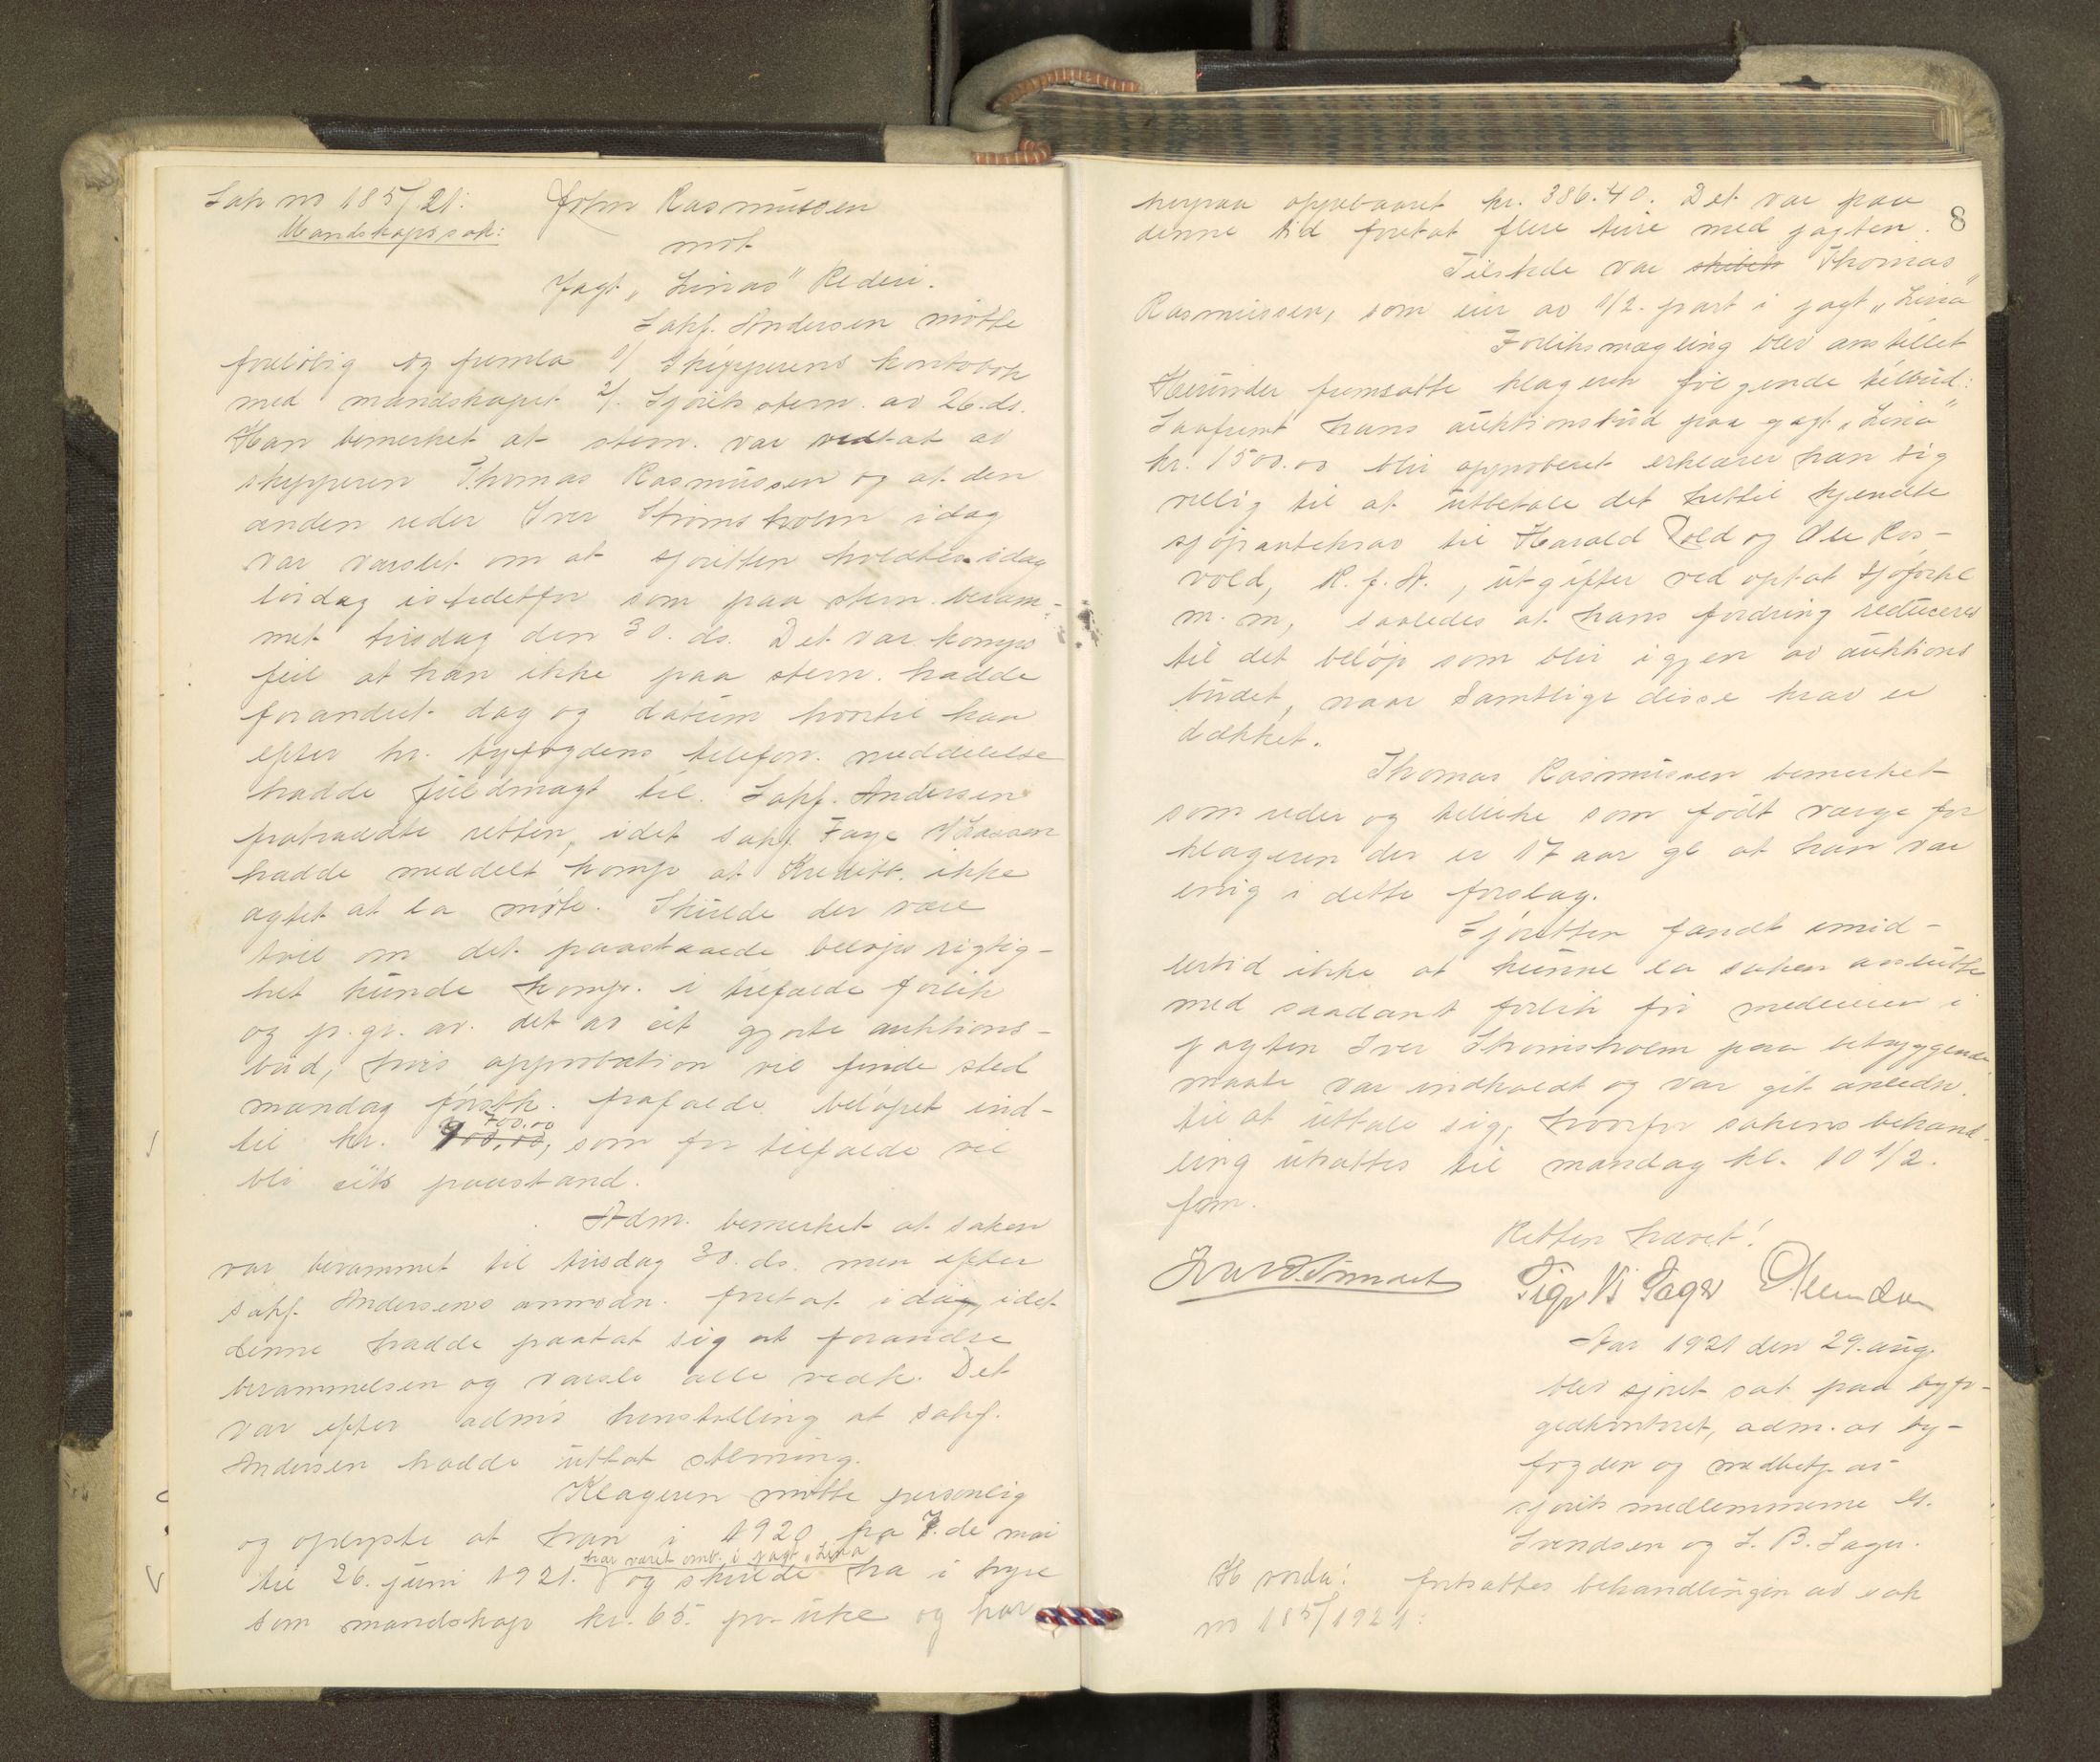 Sak no 185/21: John Rasmussen
Mandskapssak:
mot
Jagt "Linas" Rederi.
Sakf. Andersen møtte
foreløbig og fremla 1/ Skipperens kontobok
med mandskapet 2/. Sjørets stevn. av 26. ds.
Han bemerket at stevn. var vedtat av
skipperen Thomas Rasmussen og at den
anden reder Iver Strømsholm idag
var varslet om at sjøretten holdtes idag
lørdag istedetfor som paa stevn. beram-
met tirsdag den 30. ds. Det var komps
feil at han ikke paa stevn. hadde
forandret dag og datum hvortil han
efter hr. byfogdens telefon. meddelelse
hadde fuldmagt til. Sakf. Andersen
fratraadte retten, idet sakf. Faye
hadde meddelt komp at Kreditb. ikke
agtet at la møte. Skulde der være
tvil om det paastaaede beløps rigtig-
het kunde komp. i tilfælde forlik
og p. gr. av. det av cit gjorte auktions-
bud, hvis approbation vil finde sted
mandag førstk. frafalde beløpet ind-
til kr. 700.00 900.00, som for tilfælde vil
bli cits paastand.
Adm. bemerket at saken
var berammet til tirsdag 30. ds. men efter
sakf. Andersens anmodn. foretat idag, idet
denne hadde paatat sig at forandre
berammelsen og varsle alle vedk. Det
var efter adms henstilling at sakf.
Andersen hadde uttat stevning.
Klageren møtte personlig
og oplyste at han i 1920 fra 7. de mai
til 26. juni 1921. har været omb. i jagt "Lina"
og skulde ha i hyre
som mandskap kr. 65. pr uke og har
8
herpaa oppebaaret kr. 386.40. Det var paa
denne tid foretat flere turer med jagten.
Tilstede var skibets Thomas
Rasmussen, som eier av 1/2. part i jagt "Lina"
Forliksmægling blev anstillet
Herunder fremsatte klageren følgende tilbud:
Saafremt hans auktionsbud paa jagt "Lina"
kr. 1500.00 blir approberet erklærer han sig
villig til at utbetale det hittil kjendte
sjøpantekrav til Harald Vold og Ole Ros-
vold, K. f. A., utgifter ved optat sjøforkl
m. m, saaledes at hans fordring reduceres
til det beløp som blir igjen av auktions
budet, naar samtlige disse krav er
dækket.
Thomas Rasmussen bemerket
som reder og tillike som født værge for
klageren der er 17 aar gl at han var
enig i dette forslag.
Sjøretten fandt imid-
lertid ikke at kunne la saken avslutte
med saadant forlik før medeieren i
jagten Iver Strømsholm paa betryggende
maate var indkaldt og var git anledn.
til at uttale sig, hvorfor sakens behand-
ling utsattes til mandag kl. 10 1/2.
fm.
Retten hævet!
Aar 1921 den 29. aug.
blev sjøret sat paa byfo-
gedkontoret, adm. av by-
fogden og medbetj. av
sjørets medlemmerne M.
Svendsen og S. B. Sager.
Hvorda: fortsattes behandlingen av sak
no 185/1921: